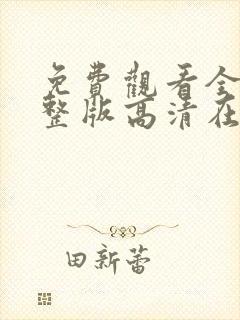 免費觀看全
整版高清在
田新蕾